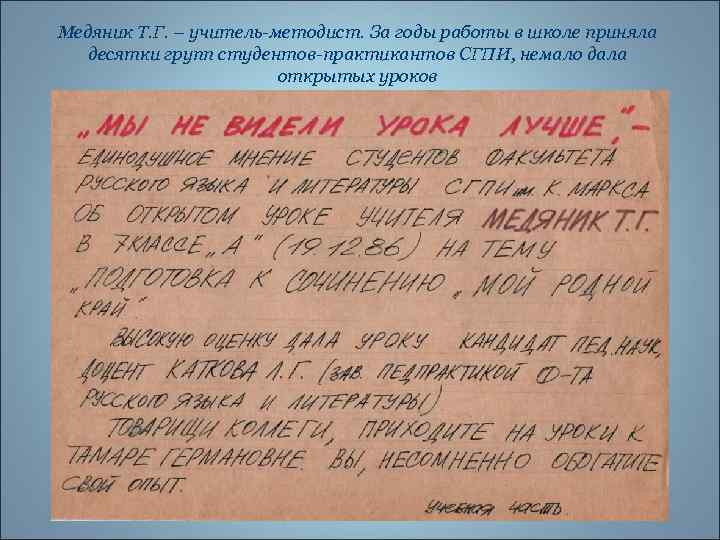 Медяник Т.Г. – учитель-методист. За годы работы в школе приняла
десятки групп студентов-практикантов СГПИ, немало дала
открытых уроков
„МЫ НЕ ВИДЕЛИ УРОКА ЛУЧШЕ,“–
ЕДИНОДУШНОЕ МНЕНИЕ СТУДЕНТОВ ФАКУЛЬТЕТА
РУССКОГО ЯЗЫКА И ЛИТЕРАТУРЫ СГПИ им. К. МАРКСА
ОБ ОТКРЫТОМ УРОКЕ УЧИТЕЛЯ МЕДЯНИК Т.Г.
В 7КЛАССЕ „А“ (19.12.86) НА ТЕМУ
„ПОДГОТОВКА К СОЧИНЕНИЮ „МОЙ РОДНОЙ
КРАЙ“.
ВЫСОКУЮ ОЦЕНКУ ДАЛА УРОКУ КАНДИДАТ ПЕД. НАУК,
ДОЦЕНТ КАТКОВА Л.Г. (ЗАВ. ПЕДПРАКТИКОЙ Ф-ТА
РУССКОГО ЯЗЫКА И ЛИТЕРАТУРЫ)
ТОВАРИЩИ КОЛЛЕГИ, ПРИХОДИТЕ НА УРОКИ К
ТАМАРЕ ГЕРМАНОВНЕ. ВЫ, НЕСОМНЕННО ОБОГАТИТЕ
СВОЙ ОПЫТ.
УЧЕБНАЯ ЧАСТЬ.